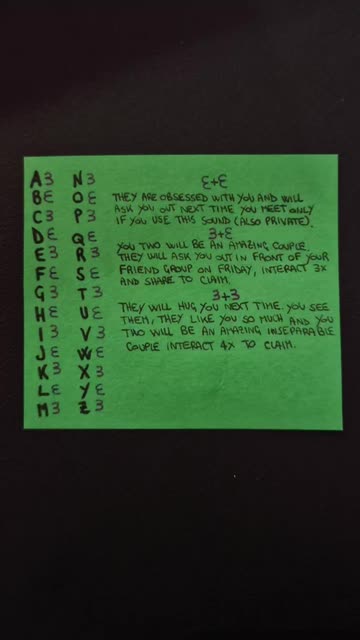 A3 N3
BƐ OƐ
C3 P3
DƐ QƐ
E3 R3
FƐ SƐ
G3 T3
HƐ UƐ
I3 V3
JƐ WƐ
K3 X3
LƐ YƐ
M3 Z3
Ɛ+Ɛ
THEY ARE OBSESSED WITH YOU AND WILL
ASK YOU OUT NEXT TIME YOU MEET ONLY
IF YOU USE THIS SOUND (ALSO PRIVATE).
3+Ɛ
YOU TWO WILL BE AN AMAZING COUPLE.
THEY WILL ASK YOU OUT IN FRONT OF YOUR
FRIEND GROUP ON FRIDAY, INTERACT 3X
AND SHARE TO CLAIM.
3+3
THEY WILL HUG YOU NEXT TIME YOU SEE
THEM, THEY LIKE YOU SO MUCH AND YOU
TWO WILL BE AN AMAZING INSEPARABLE
COUPLE INTERACT 4X TO CLAIM.